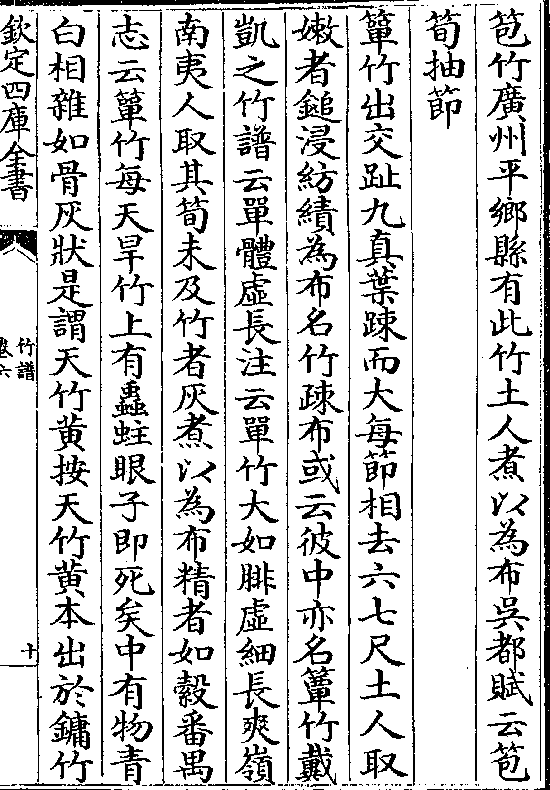 笣竹廣州平鄉縣有此竹土人煮以為布吳都賦云笣
筍抽節
簞竹出交趾九真葉踈而大每節相去六七尺土人取
嫩者鎚浸紡績為布名竹疎布或云彼中亦名簞竹戴
凱之竹譜云單體虛長注云單竹大如腓虛細長爽嶺
南夷人取其筍未及竹者灰煮以為布精者如縠番禺
志云簞竹每天旱竹上有蟲蛀眼子即死矣中有物青
白相雜如骨灰狀是謂天竹黃按天竹黃本出於鏞竹
欽定四庫全書
竹譜
卷六
十